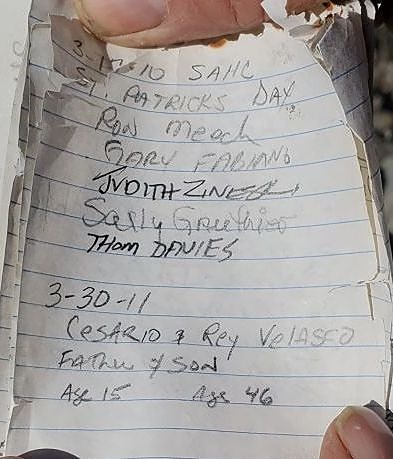 3-17-10 SAHC
St PATRICKS DAY
Ron Meech
GARY FABIANO
JUDITH
Sally Gauthier
THOM DAVIES
3-30-11
CESARIO & Rey VelASCO
FATHER & SON
Age 15 Age 46